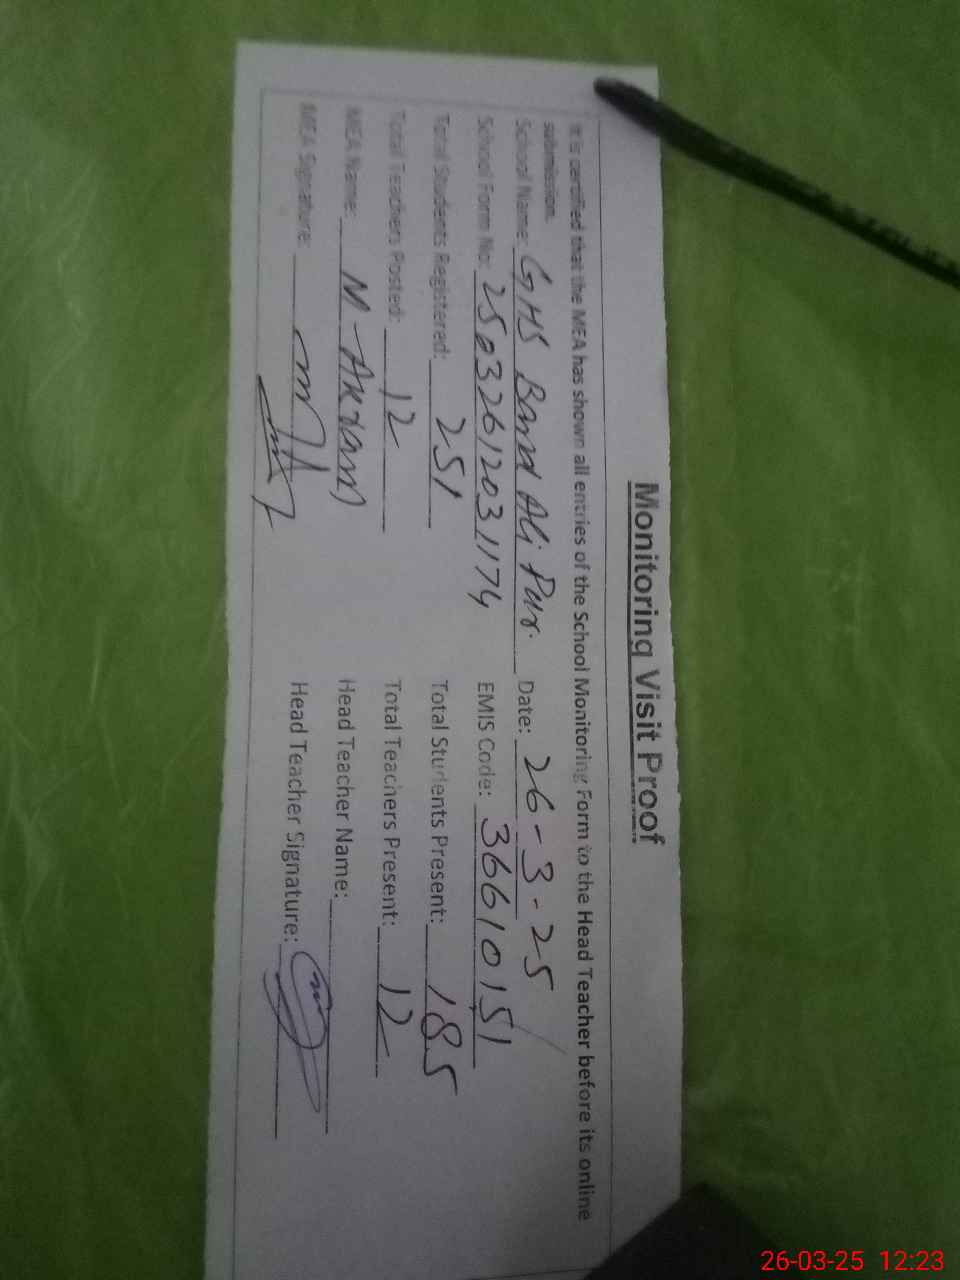 Monitoring Visit Proof
It is certified that the MEA has shown all entries of the School Monitoring Form to the Head Teacher before its online
submission.
School Name: GHS Band Ali Pur. Date: 26-3-25
School Form No: 25032612031174 EMIS Code: 36610151
Total Students Registered: 251 Total Students Present: 185
Total Teachers Posted: 12 Total Teachers Present: 12
MEA Name: M-Akram Head Teacher Name:
MEA Signature: Head Teacher Signature:
26-03-25 12:23